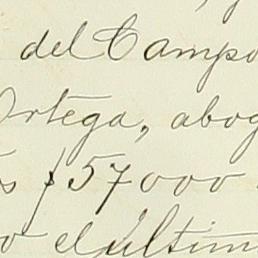 del Campo
Ortega, abog
s $57000
o el últim